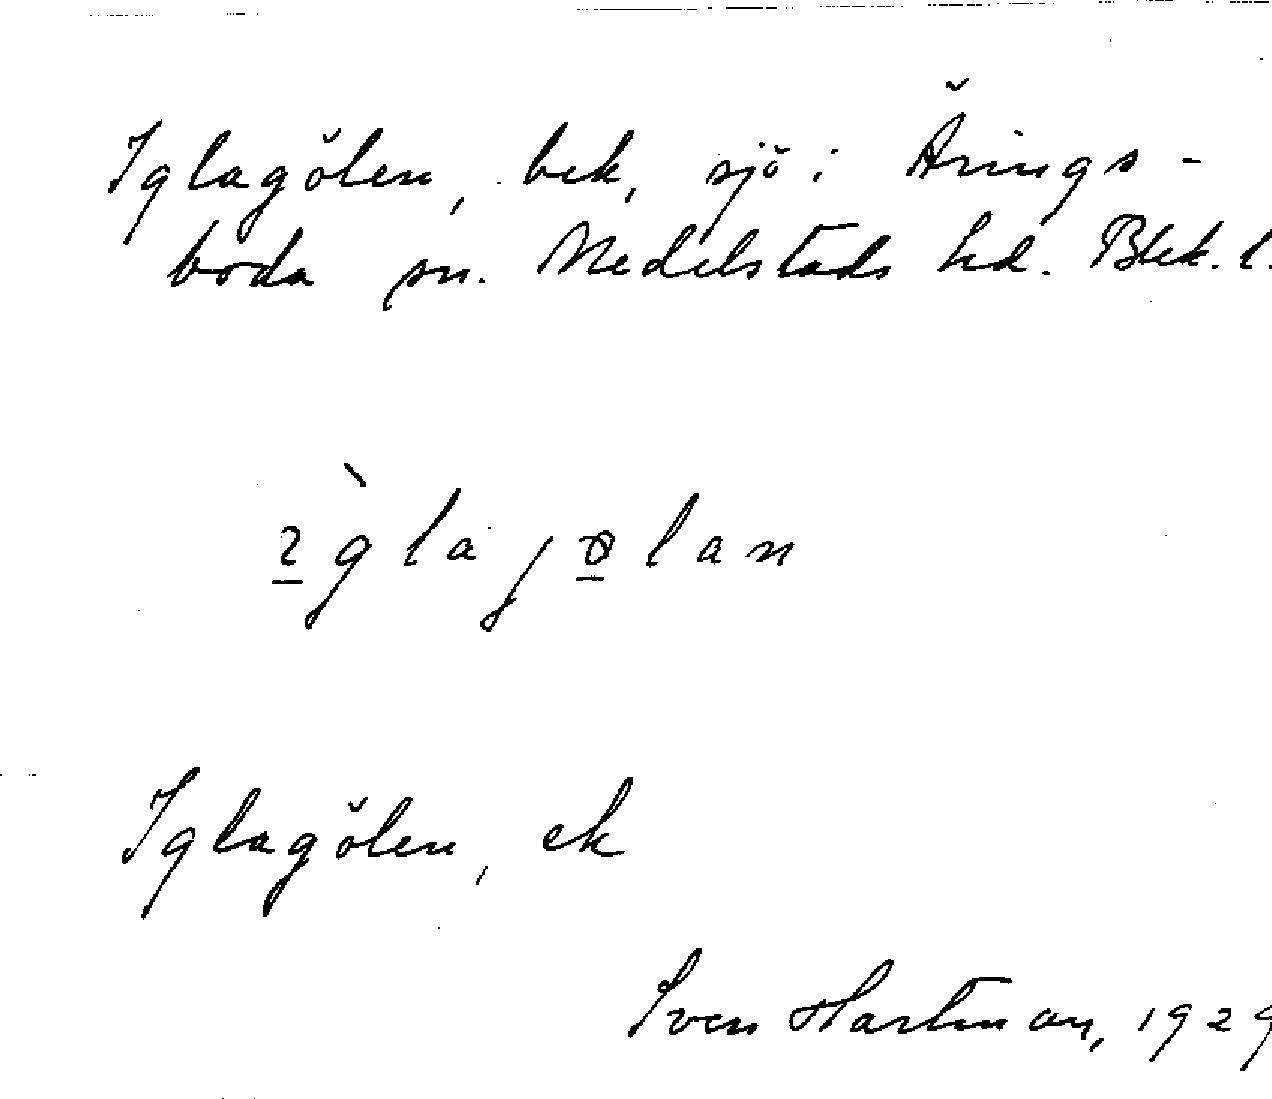 Iglagölen, bek, sjö i Årings-
boda sn. Medelstads hd. Blek. l.
ɩ̠̀glajø̠lan
Iglagölen, ek
Sven Hartman, 1929